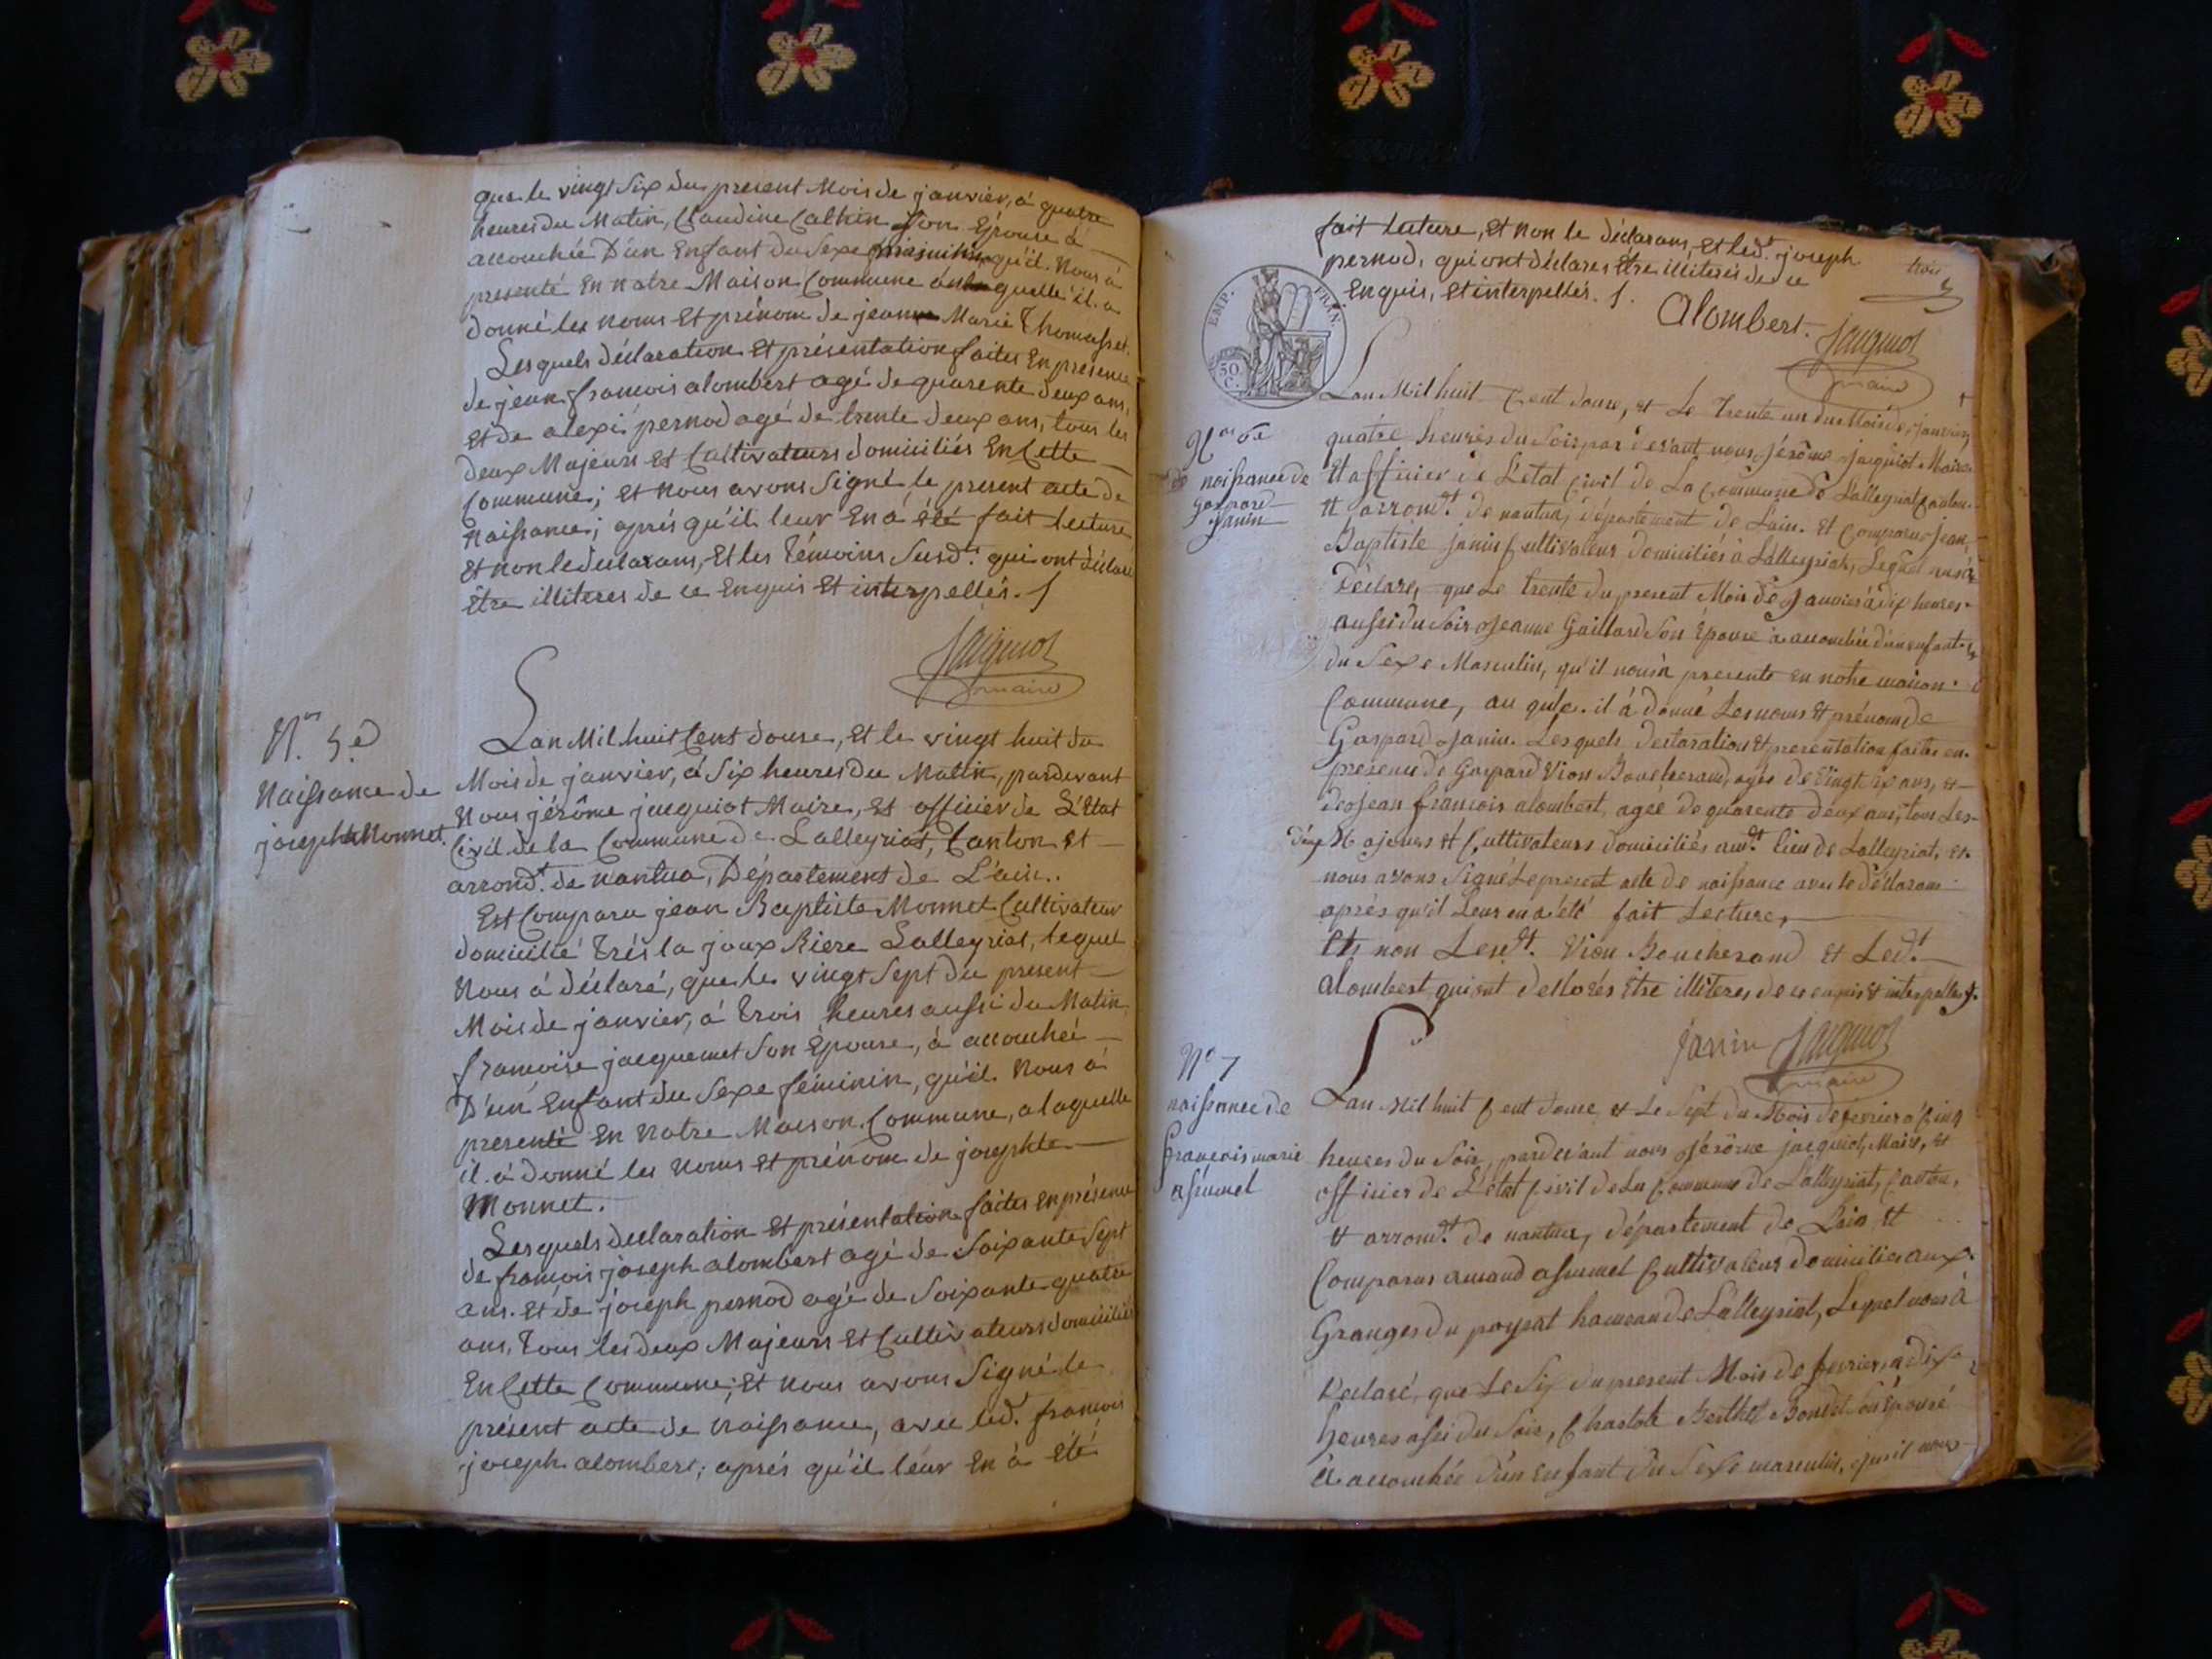 que le vingt six du present Mois de janvier, à quatre
heures du Matin, Claudine Calhin son Epouse à
accouchée D'un Enfant du Sexe masculin qu'il Nous à
presenté En notre Maison Commune quelle il a
donné les noms Et prénom de jean Marie Thomasset.
Lesquels déclaration Et présentation faites En presence
de jean françois alombert agé de quarente deux ans,
Et de alexi pernod agé de trente deux ans, tous les
deux Majeurs Et Cultivateurs domiciliés En Cette
Commune; Et nous avons Signé le present acte de
Naissance; aprés qu'il leur En à été fait lecture
Et non le declarans, Et les Témoins Susdts. qui ont déclaré
Être illiteres de ce Enquis Et interpellés. /
Jacquiot
maire
N. 5e
Naissance de
josephte Monnet.
Lan Mil huit Cent douse, Et le vingt huit du
Mois de janvier, à Six heures du Mattin, pardevant
Nous jérôme jacquiot Maire, Et officier de L'Etat
Civil de la Commune de Lalleyriat, Canton Et
arrondt. de nantua, Département de L'ain..
Est Comparu jean Baptiste Monnet Cultivateur
domicilié Très la joux Riere Lalleyriat, lequel
Nous à déclaré, que le vingt Sept du présent
Mois de janvier, à Trois heures aussi du Matin
françoise jacquemet Son Epouse, à accouchée
D'un Enfant du Sexe féminin, qu'il Nous à
presenté En Notre Maison Commune, a laquelle
il à donné les Noms Et prénom de josephte
Monnet.
Lesquels declaration Et présentation faites En présence
de françois joseph alombert agé de Soixante Sept
ans. Et de joseph pernod agé de Soixante quatre
ans, Tous les deux Majeurs Et Cultivateurs domiciliés
En Cette Commune; Et nous avons Signé le
présent acte de Naissance, avec led. françois
joseph alombert; aprés qu'il leur En à été
fait lecture, Et non le déclarans, Et ledt. joseph
pernod, qui ont déclarés Etre illiterés de ce
Enquis, Et interpellés. /.
trois
EMP. FRAN.
50 C.
Alombert
Jacquiot
maire
Nos 6e
de naissance de
gaspard
Janin
Lan Mil huit Cent douse, et Le Trente un du Mois de Janvier,
quatre heures du Soir par devant nous Jérôme Jacquiot Maire
Et officier de L'état Civil de La Commune de Lalleyriat Canton
et arrondt. de nantua, département de Lain. Et Comparu Jean
Baptiste Janin Cultivateur domiciliés à Lalleyriat, Lequel nous à
Déclaré, que Le trente du present Mois de Janvier à dix heures
aussi du Soir Jeanne Gaillard Son Epouse à accouchée d'un enfant
du Sexe Masculin, qu'il nous à presente en notre maison
Commune, au qu'el il à donné Les noms Et prénom de
Gaspard Janin. Lesquels declaration Et presentation faites en
presence de Gaspard Vion Boucherand, agés de vingt ans, et
de Jean françois alombert, ageé de quarente deux ans, tous Les
deux Majeurs et Cultivateurs domiciliés audt. lieu de Lalleyriat, et
nous avons Signé Le present acte de naissance avec le déclarans
aprés qu'il Leur en à été fait Lecture,
Et non Lesdt. Vion Boucherand Et Ledt.
Alombert qui ont dellorés Être illiteres de ce enquis et interpellés /.
janin Jacquiot
maire
No 7
naissance de
françois marie
assumel
Lan Mil huit Cent douse et Le Sept du Mois de fevrier à Cinq
heures du Soir, pardevant nous Jérôme jacquiot, Maire, et
officier de L'état Civil de La Commune de Lalleyriat, Canton,
et arrondt. de nantua, département de Lain et
Comparus amand assumel Cultivateur domiciliés aux
Granges du poysat hameau de Lalleyriat, Lequel nous à
Declaré, que Le Six du present Mois de fevrier, à dix
heures assi du Soir, Charlote Berthet Bondet Son Epouse
à accouchée d'un Enfant du Sexe masculin, qu'il nous